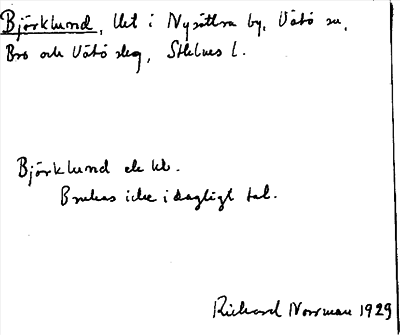 Björklund, lht i Nysättra by, Vätö sn,
Bro och Vätö skg, Sthlms l.
Björklund
Brukas icke i dagligt tal.
Richard Norrman 1929